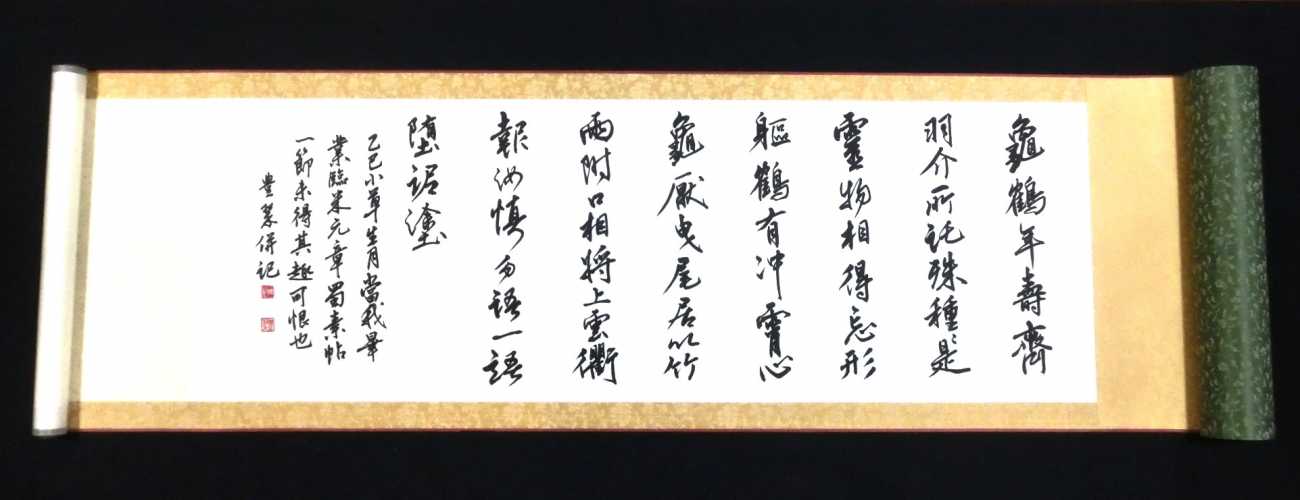 龜鶴年壽齊
羽介所託殊種〻是
靈物相得忘形
軀鶴有冲霄心
龜厭曳尾居以竹
兩附口相將上雲衢
報汝慎勿語一語
墮泥塗
乙巳小草生月當我畢
業臨米元章蜀素帖
一節未得其趣可恨也
豊併記